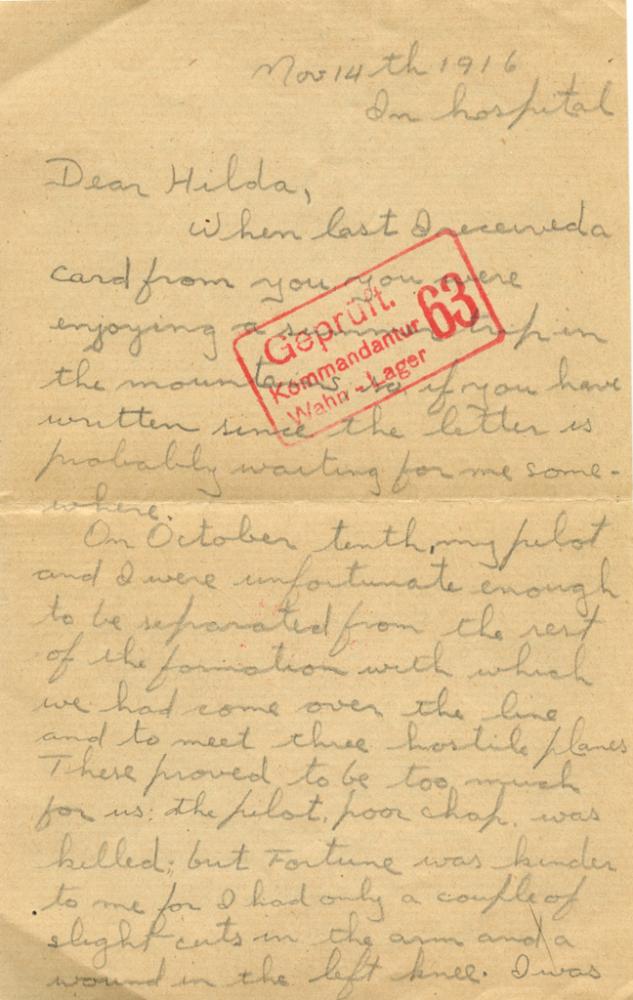 Nov 14th 1916
In hospital
Dear Hilda,
When last I received a
card from you you were
enjoying a summer trip in
the mountains, so if you have
written since the letter is
probably waiting for me some-
where.
On October tenth, my pilot
and I were unfortunate enough
to be separated from the rest
of the formation with which
we had come over the line
and to meet three hostile planes
These proved to be too much
for us; the pilot, poor chap, was
killed; but Fortune was kinder
to me for I had only a couple of
slight cuts in the arm and a
wound in the left knee. I was
Geprüft.
63
Kommandantur
Wahn-Lager